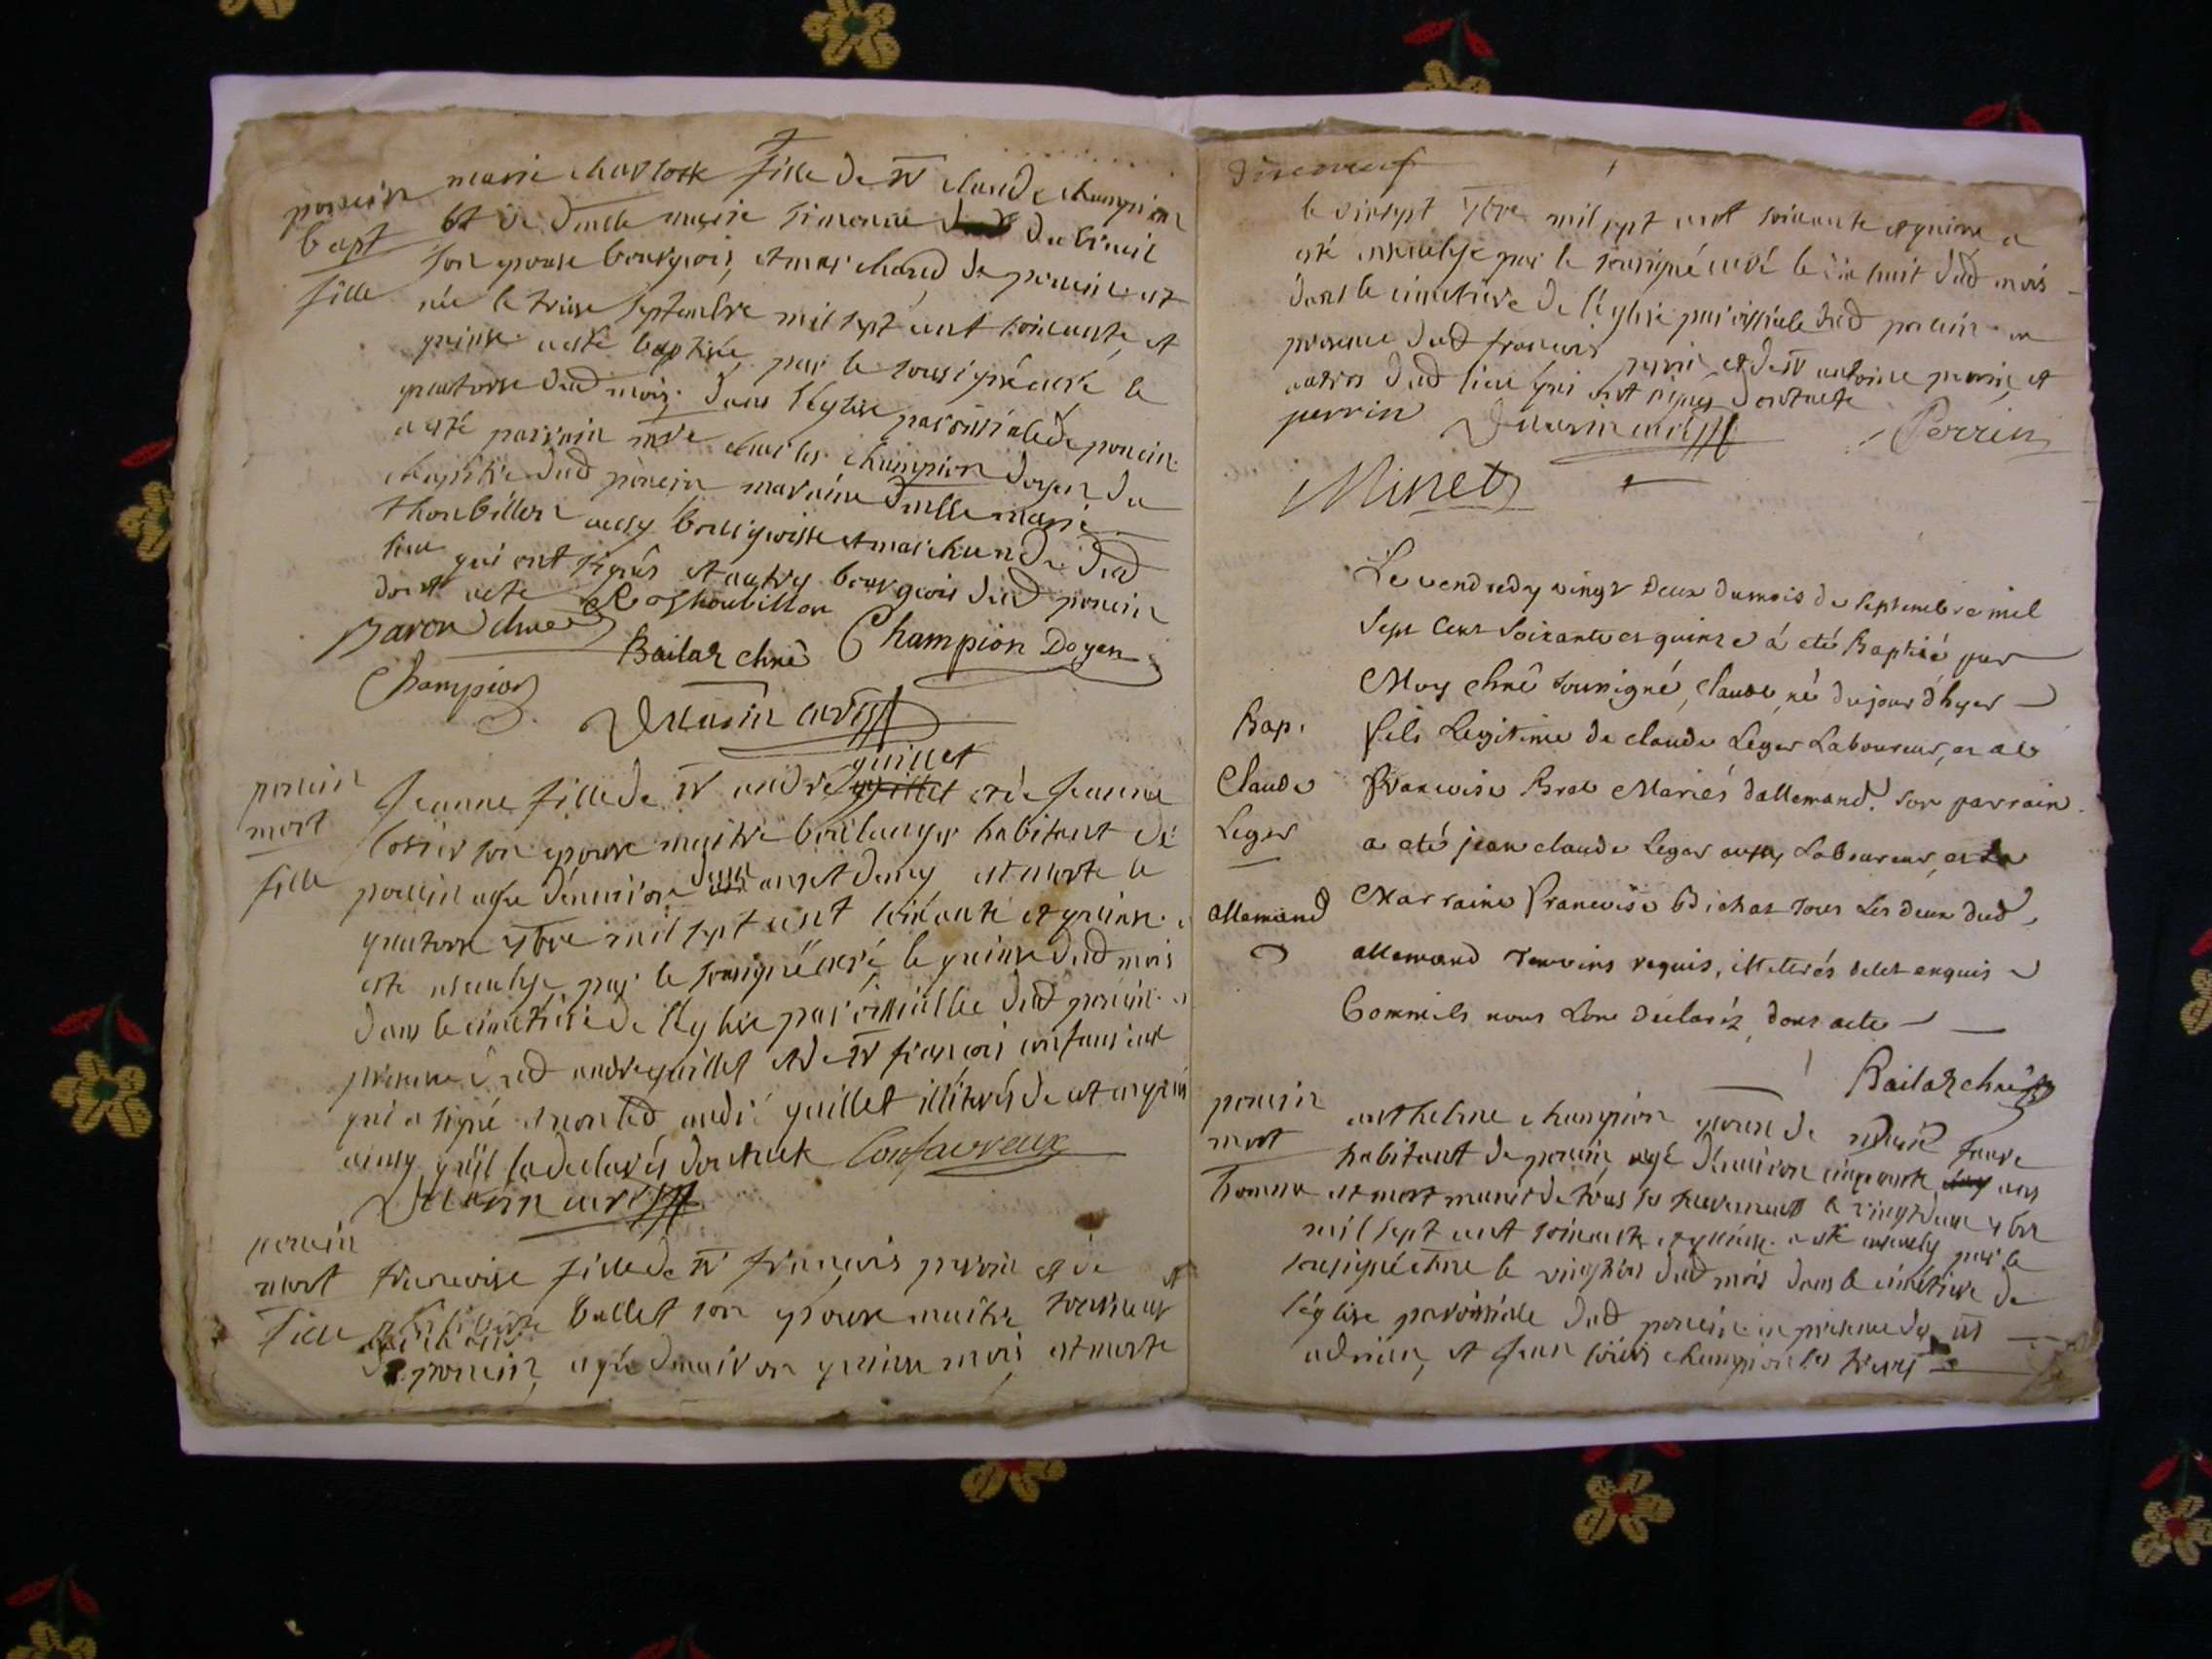 poncin
bapt
fille
marie charlotte fille de Sr claude champion
et de dmlle marie simonne du breuil
son epouse bourgeois, et marchand de poncin est
née le treise septembre mil sept cent soixante, et
quinse a esté baptisée par le sousigné curé le
quatorse dud mois dans l'église paroissiale de poncin
a esté parrain mre charles champion doyen du
chapitre dud poncin marraine dmlle marie
thorbillon aussy bourgeoise et marchande dud
lieu qui ont signés et autres bourgeois dud poncin
dont acte
Baron chne
Bailat chne Champion Doyen
Champion
curé
poncin
mort
fille
guillet
jeanne fille de Sr andré guillet et de jeanne
son epouse maitre boulanger habitant de
poncin agée d'environ deux ans et demy est morte le
quatorse 7bre mil sept cent soixante et quinse a
esté ensevelye par le sousigné curé le quinse dud mois
dans le cimetière de l'église paroissialle dud poncin en
présence dud andré guillet et de Sr françois confavreux
qui a signé et non led andré guillet illitérés de ce enquis
ainsy qu'il l'a declarés dont acte Confavreux
curé
poncin
mort
fille
francoise fille de Sr françois perrin et de
ballet son epouse maitre
de poncin, agée d'environ quinse mois, est morte
dixneuf
le dixsept 7bre mil sept cent soixante et quinse a
esté ensevelye par le sousigné curé le dix huit dud mois
dans le cimetière de l'église paroissiale dud poncin en
presence dud françois perrin et de Sr antoine perrin, et
autres dud lieu qui ont signés dont acte
perrin curé Perrin
Minet
Bap.
Claude
Leger
allemand
Le vendredy vingt deux du mois de septembre mil
sept cent soixante et quinze á eté Baptisé par
Moy chnê soussigné, claude, né du jour d'hyer
fils Legitime de claude Leger Laboureur, et de
francoise Brae Mariés d'allemand. son parrain
a eté jean claude Leger aussy Laboureur, et La
Marraine francoise Bichat tous Les deux dud
allemand temoins requis, illiterés de ce enquis
Comm'ils nous L'ont déclaréz, dont acte
Bailat chnê
poncin
mort
homme
anthelme champion epoux de marie favre
habitant de poncin, agé d'environ cinquante ans
est mort muni de tous les sacrements le vingt deux 7bre
mil sept cent soixante et quinse a esté ensevely par le
sousigné chne le vingt trois dud mois dans le cimetiere de
l'église paroissialle dud poncin en presence des Srs
adrien, et jean louis champion les frères